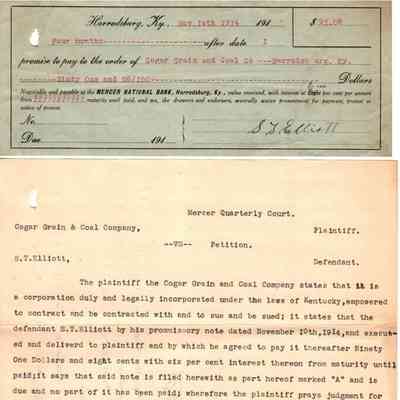 Harrodsburg, Ky., Nov. 10th 1914 191 $ 91.08
Four months------------------------after date I
promise to pay to the order of Cogar Grain and Coal Co ---
-------Ninety One and 08/100---------- Dollars
Negotiable and payable at the MERCER NATIONAL BANK, Harrodsburg, Ky., value received, with interest at per cent per annum
from until paid, and we, the drawers and endorsers, severally waive presentment for payment, protest or
notice of protest.
No.
Due 191
S.T. Elliott
Mercer Quarterly Court.
Cogar Grain & Coal Company, Plaintiff.
--VS-- Petition.
S.T.Elliott, Defendant.
The plaintiff the Cogar Grain and Coal Company states that it is
a corporation duly and legally incorporated under the laws of Kentucky,empowered
to contract and be contracted with and to sue and be sued; it states that the
defendant S.T.Elliott by his promissory note dated November 10th,1914,and execut-
ed and deliverd to plaintiff and by which he agreed to pay it thereafter Ninety
One Dollars and eight cents with six per cent interest thereon from maturity until
paid;it says that said note is filed herewith as part hereof marked "A" and is
due and no part of it has been paid; wherefore the plaintiff prays judgment for